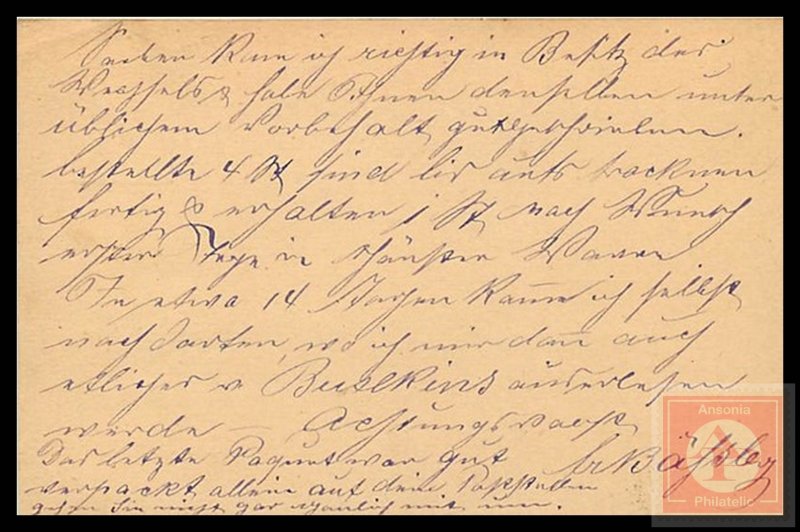 Soeben kam ich richtig in Besitz des
Wechsels & habe Ihnen denselben unter
üblichem Vorbehalt gutgeschrieben.
bestellte 4 St sind bis aufs trocknen
fertig & erhalten 1 St nach Wunsch
erster Tage in schönster Waare
In etwa 14 Tagen komme ich selbst
nach dorten, wo ich mir dann auch
etliches v Buckskins auserlesen
werde — Achtungsvollst
Das letzte Paquet war gut
verpackt allein auf dem
gehen Sie nicht gar mit um.
Ansonia
Philatelic